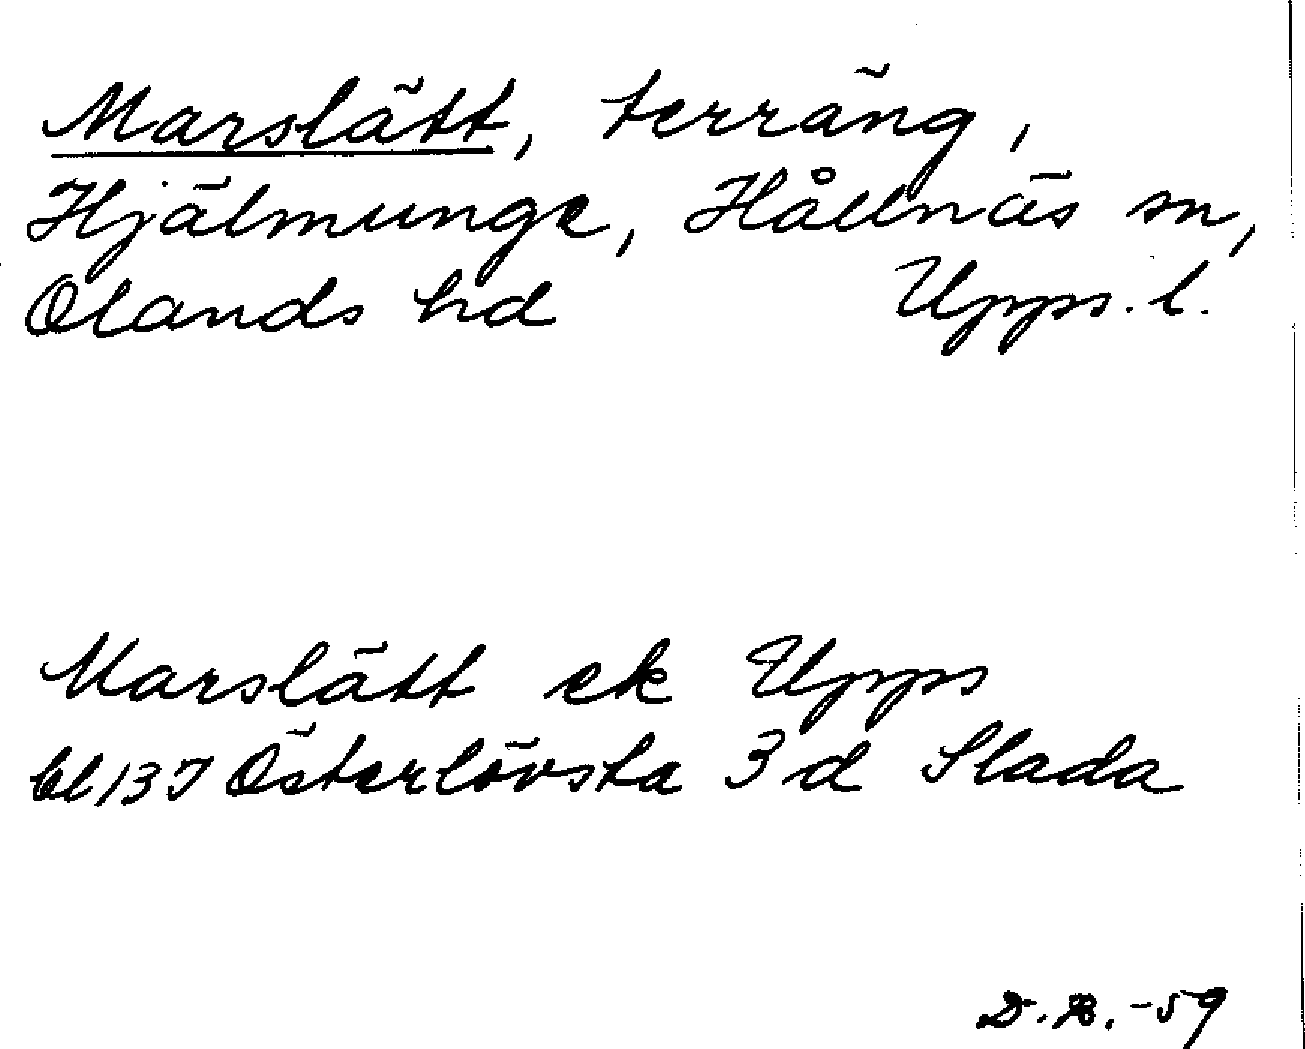 Marslätt, terräng,
Hjälmunge, Hållnäs sn,
Olands hd Upps. l.
Marslätt ek Upps
bl 137 Österlövsta 3 d Slada
D. B. -59